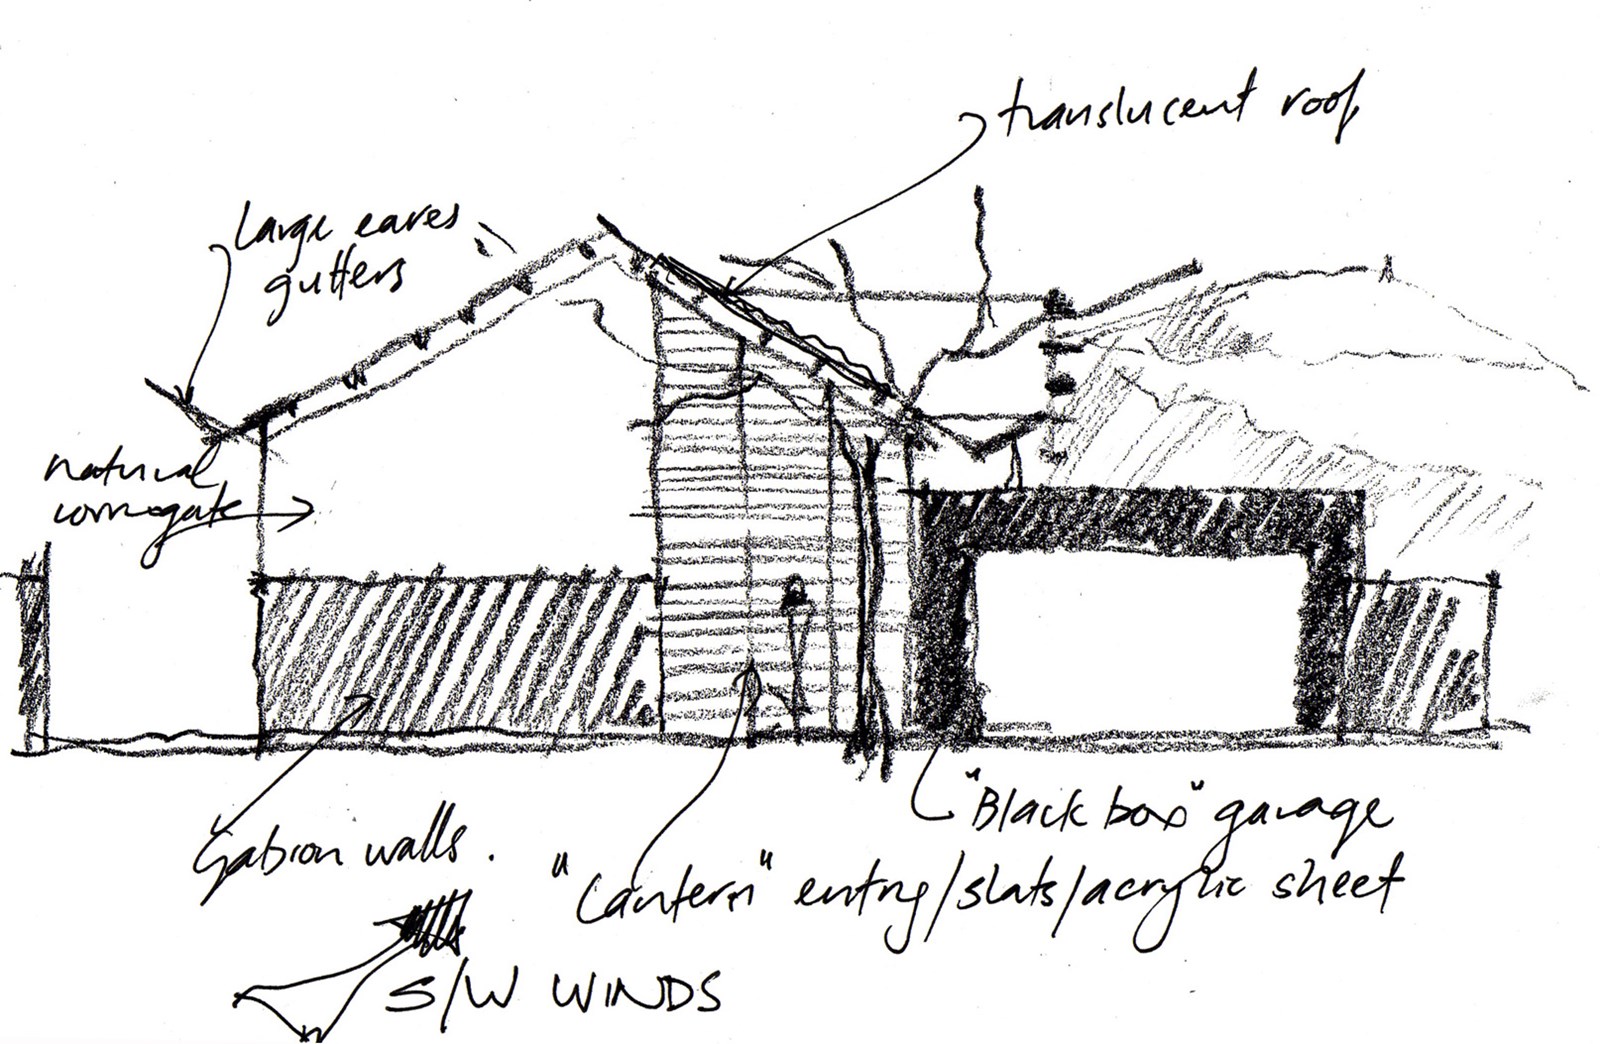 translucent roof
large eaves
gutters
natural
corrugate
Gabion walls.
"Black box" garage
"Lantern" entry/slats/acrylic sheet
S/W WINDS